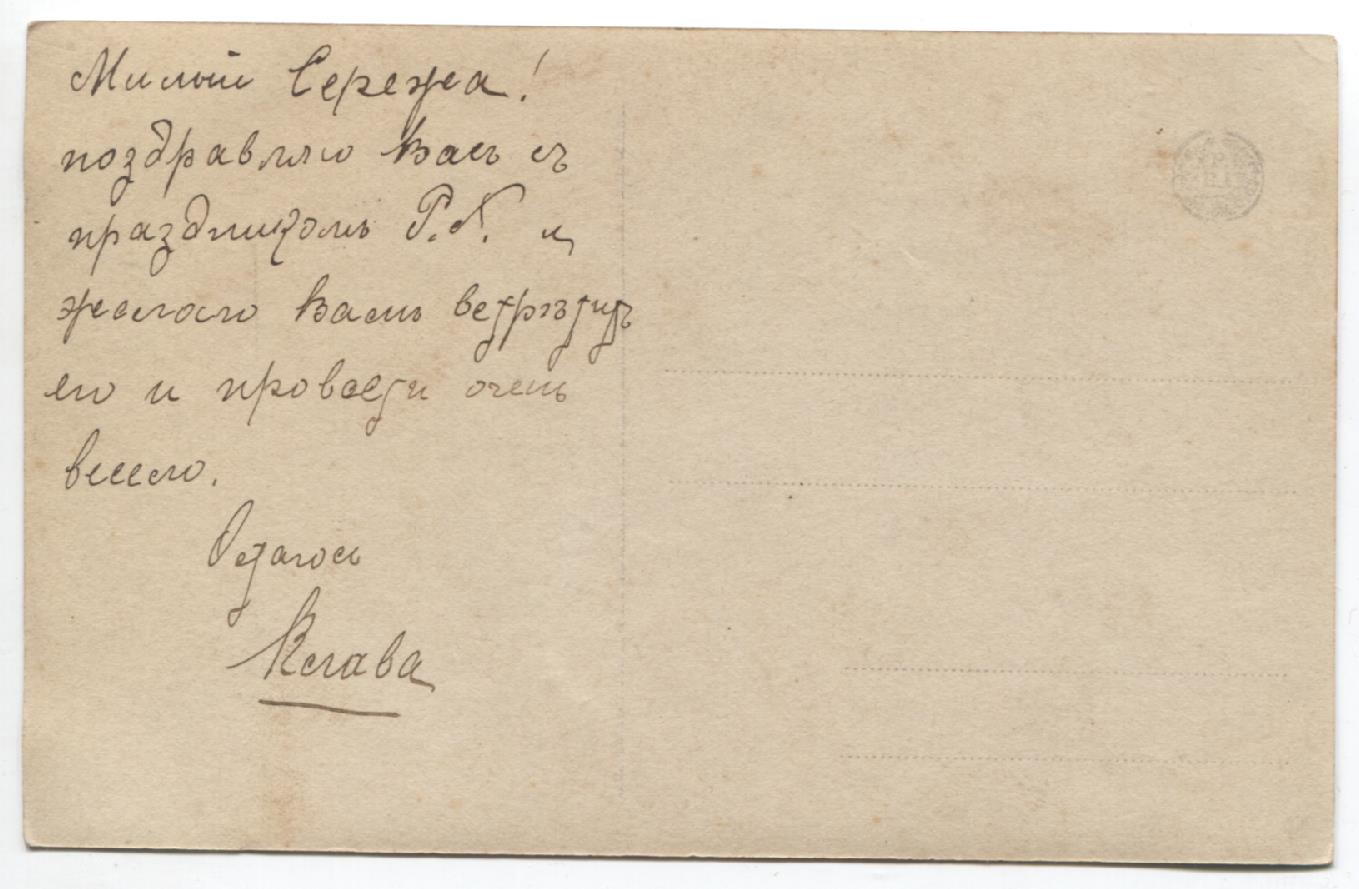 Милый Сережа!
поздравляю Васъ съ
праздникомъ Р.Х. и
желаю Вамъ встрѣтить
его и провести очень
весело.
Остаюсь
Клава